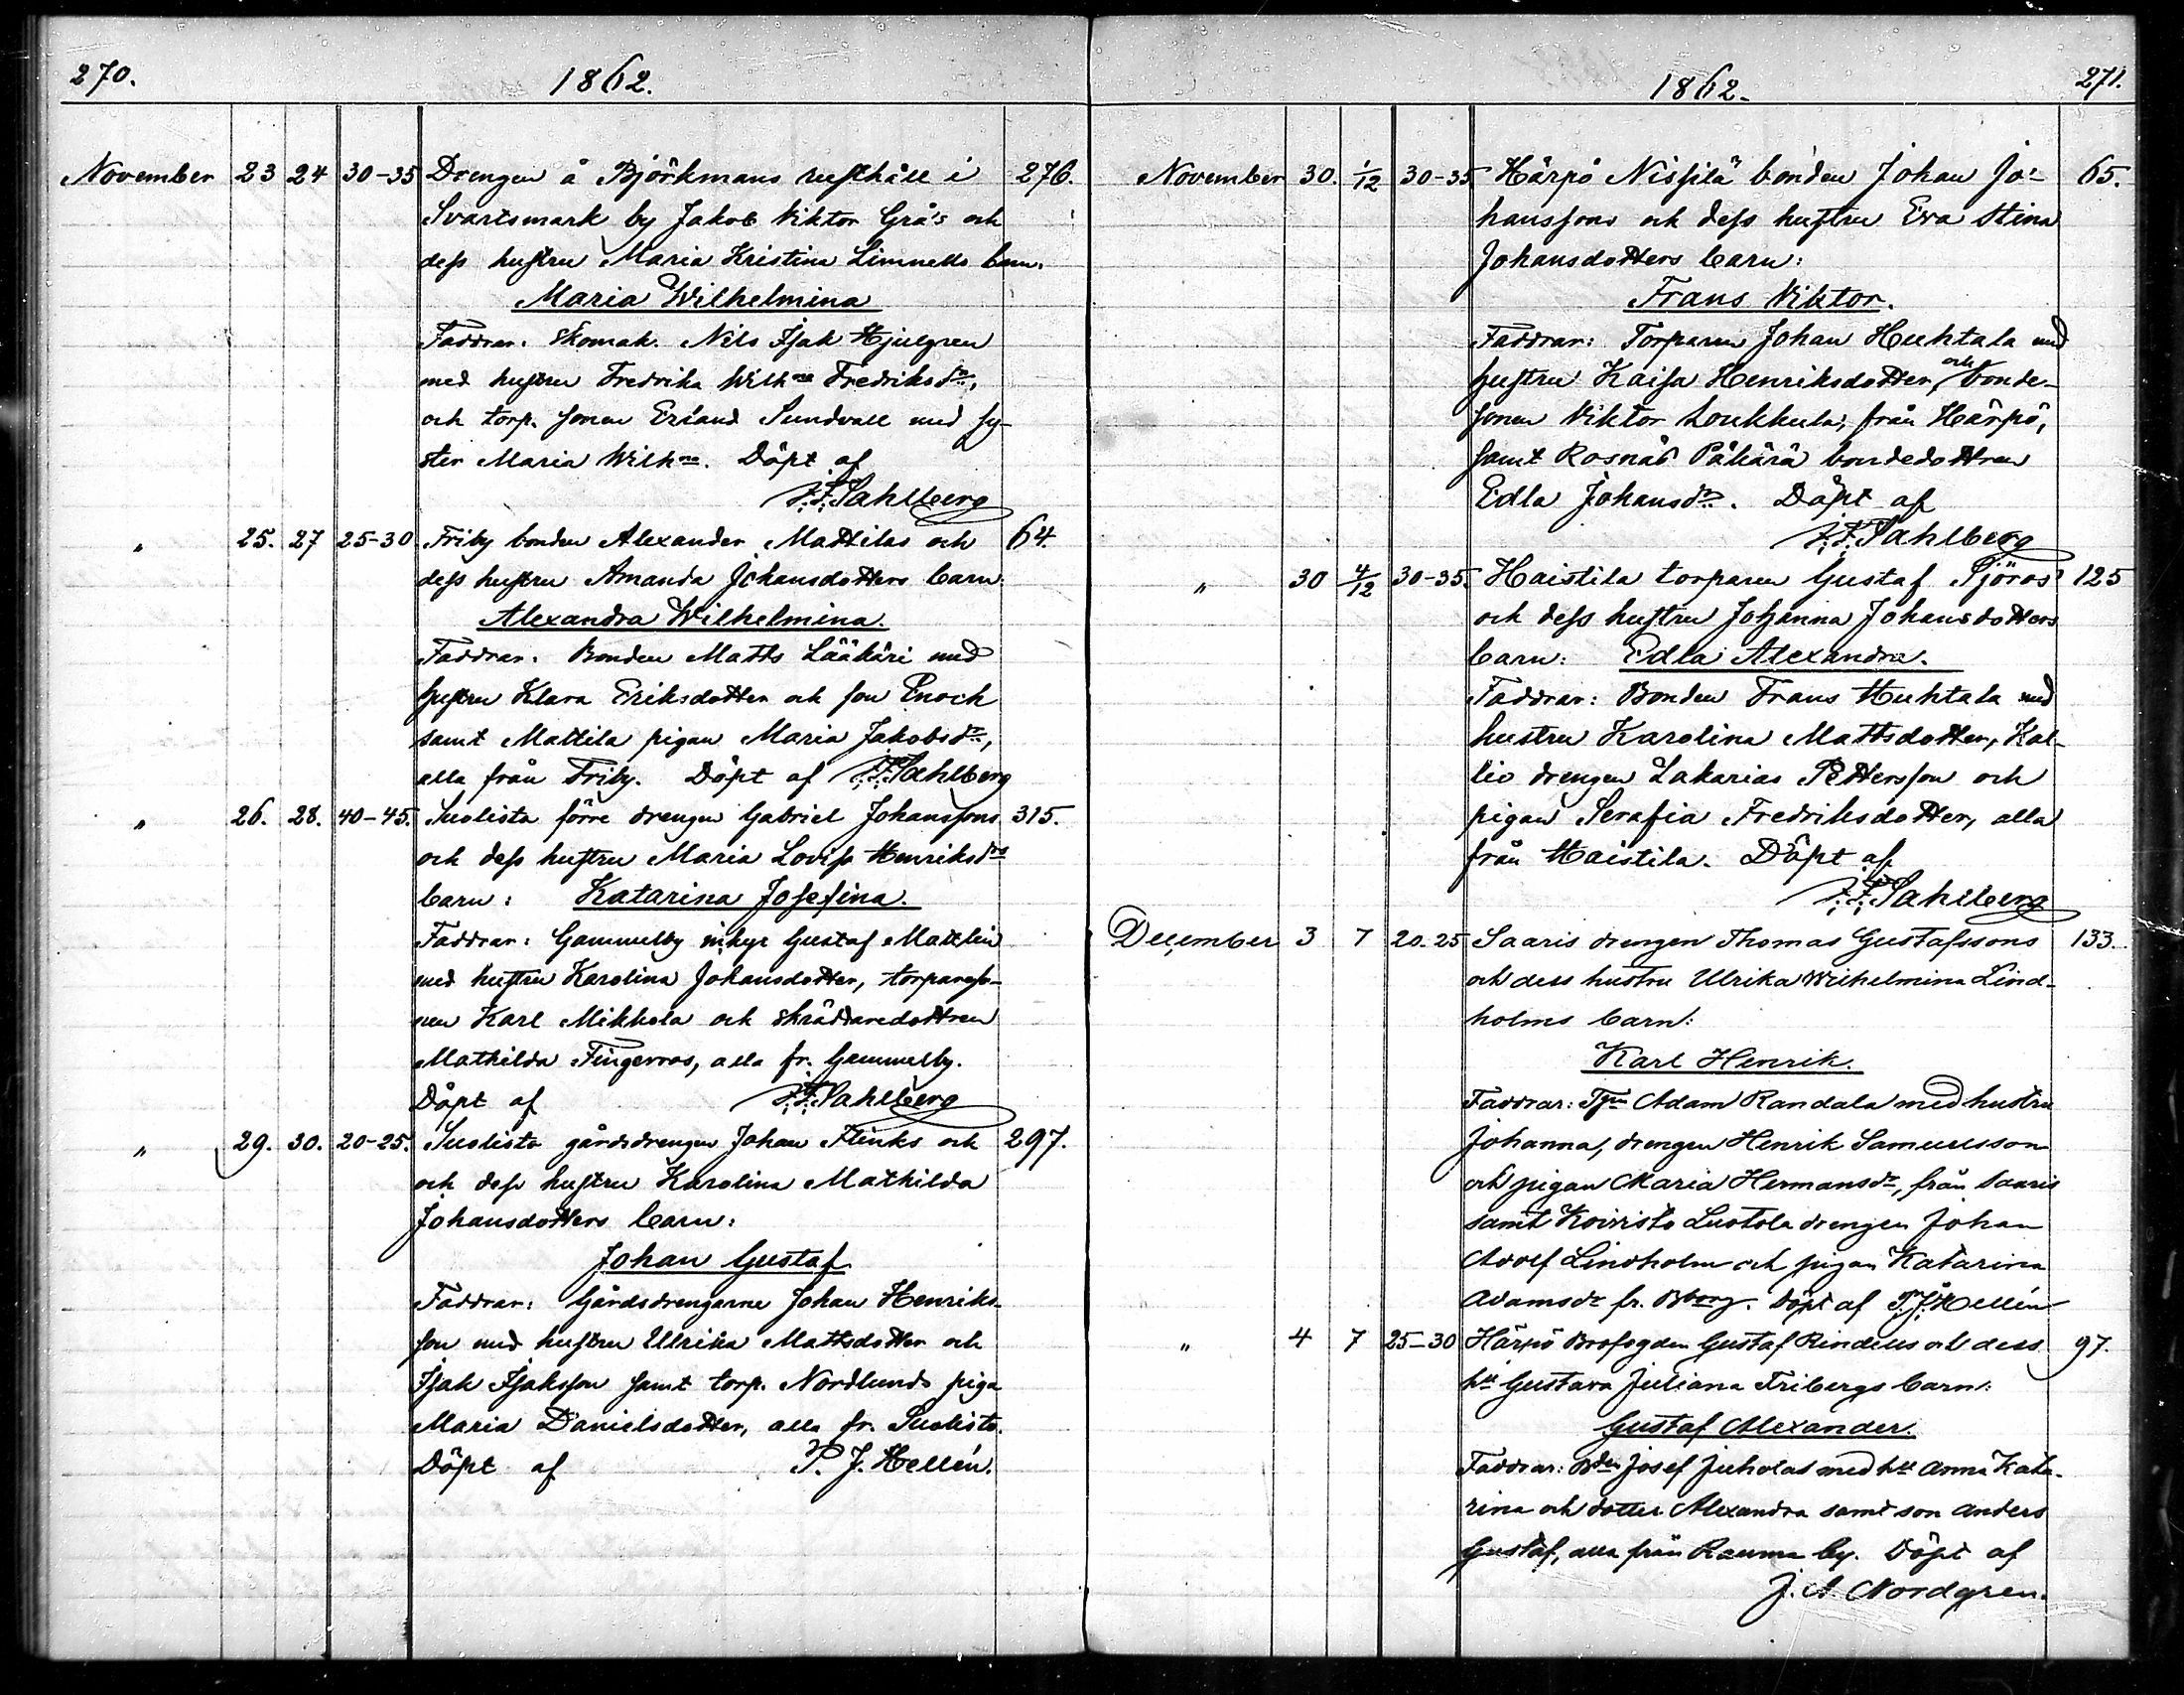 270.
1862.
November 23 24 30-35 Drengen å Björkmans rusthåll i 276.
Svartsmark by Jakob Viktor Grå's och
dess hustru Maria Kristina Limnells barn.
Maria Wilhelmina
Faddrar. Skomak. Nils Isak Hjulgren
med hustru Fredrika Wilh:na Fredriksdr,
och torp. sonen Erland Sundvall med sy-
ster Maria Wilhna. Döpt af
F.F. Sahlberg
" 25. 27 25-30 Friby bonden Alexander Mattilas och 64.
dess hustru Amanda Johansdotters barn.
Alexandra Wilhelmina.
Faddrar. Bonden Matts Lääkäri med
hustru Klara Eriksdotter och son Enoch
samt Mattila pigan Maria Jakobsdr,
alla från Friby. Döpt af F.F. Sahlberg
" 26. 28. 40-45. Suolisto förre drengen Gabriel Johanssons 315.
och dess hustru Maria Lovisa Henriksdrs
barn: Katarina Josefina.
Faddrar: Gammelby inhys Gustaf Mattlin
med hustru Karolina Johansdotter, torpareso-
nen Karl Mikkola och skräddaredottren
Mathilda Fingerroos, alla fr. Gammelby.
Döpt af F.F. Sahlberg
" 29. 30. 20-25. Suolisto gårdsdrengen Johan Flinks och 297.
och dess hustru Karolina Mathilda
Johansdotters barn:
Johan Gustaf.
Faddrar: Gårdsdrengarne Johan Henriks-
son med hustru Ulrika Mattsdotter och
Isak Isaksson samt torp. Nordlunds piga
Maria Danielsdotter, alla fr. Suolisto.
Döpt af P. J. Hellén.
1862.
271.
November 30. 1/12 30-35 Härpö Nissilä bonden Johan Jo- 65.
hanssons och dess hustru Eva Stina
Johansdotters barn:
Frans Viktor.
Faddrar: Torparen Johan Huhtala med
hustru Kaisa Henriksdotter, och bonde-
sonen Viktor Loukkula, från Härpö,
samt Rosnäs Päkärä bondedottren
Edla Johansdr. Döpt af
F.F. Sahlberg
" 30 4/12 30-35. Haistila torparen Gustaf Sjöros 125
och dess hustru Johanna Johansdotters
barn: Edla Alexandra.
Faddrar: Bonden Frans Huhtala med
hustru Karolina Mattsdotter, Kal-
lio drengen Zakarias Pettersson och
pigan Serafia Fredriksdotter, alla
från Haistila. Döpt af
F.F. Sahlberg
December 3 7 20-25 Saaris drengen Thomas Gustafssons 133.
och dess hustru Ulrika Wilhelmina Lind-
holms barn:
Karl Henrik.
Faddrar: Adam Randala med hustru
Johanna, drengen Henrik Samuelsson
och pigan Maria Hermansdr, från Saaris
samt Koivisto Luotola drengen Johan
Adolf Lindholm och pigan Katarina
Adamsdr fr. Bborg. Döpt af P.J. Hellén
" 4 7 25-30 Härpö Brofogden Gustaf Rindells och dess 97.
hu Gustava Juliana Fribergs barn:
Gustaf Alexander.
Faddrar: Bden Josef Juholas med hu Anna Kata-
rina och dotter Alexandra samt son Anders
Gustaf, alla från Rauma by. Döpt af
J. A. Nordgren.